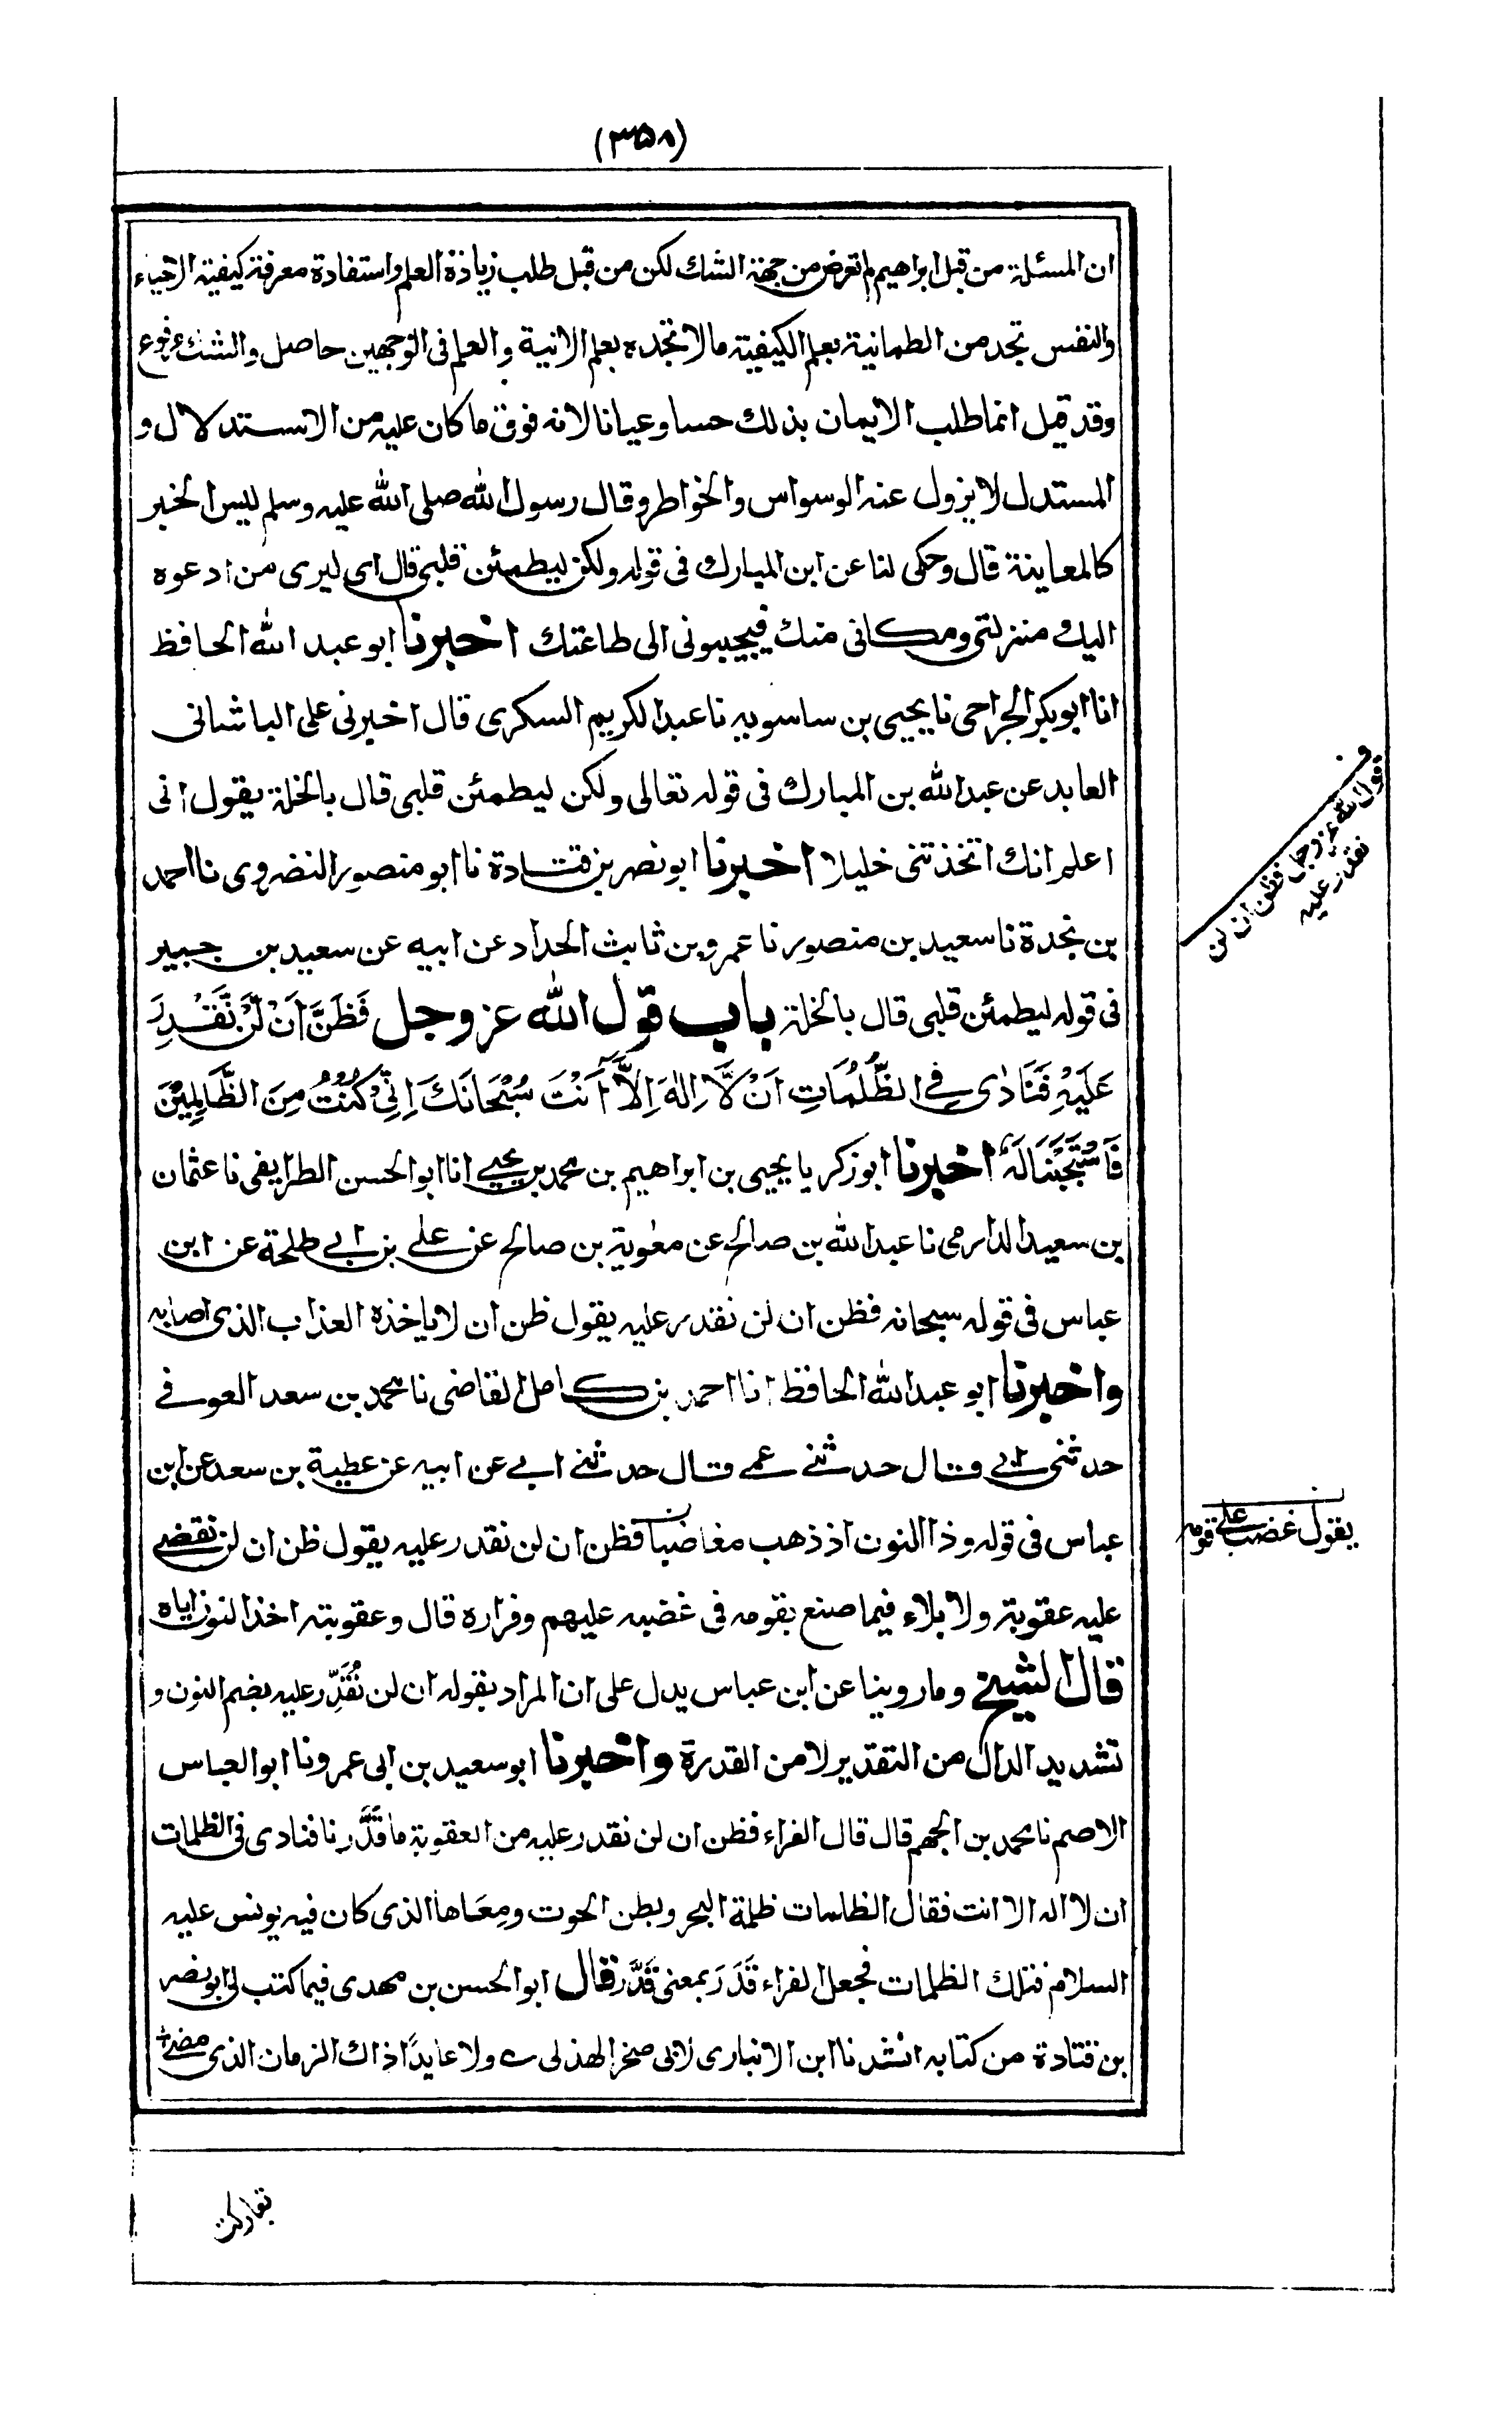 (٣٥٨)
ان المسئلة من قبل ابراهيم لم تعرض من جهة الشك لكن من قبل طلب زيادة العلم واستفادة معرفة كيفية الاحياء
والنفس تجد من الطمانية بعلم الكيفية ما لا تجده بعلم الانية والعلم فى الوجهين حاصل والشك مرفوع
وقد قيل انما طلب الايمان بذلك حسا وعيانا لانه فوق ما كان عليه من الاستدلال و
المستدل لا يزول عنه الوسواس والخواطر وقال رسول الله صلى الله عليه وسلم ليس الخبر
كالمعاينة قال وحكى لنا عن ابن المبارك فى قوله ولكن ليطمئن قلبى قال اى ليرى من ادعوه
اليك منزلتى ومكانى منك فيجيبونى الى طاعتك اخبرنا ابو عبد الله الحافظ
انا ابو بكر الجراحى نا يحيى بن ساسويه نا عبد الكريم السكرى قال اخبرنى على الباشانى
العابد عن عبد الله بن المبارك فى قوله تعالى ولكن ليطمئن قلبى قال بالخلة يقول انى
اعلم انك اتخذتنى خليلا اخبرنا ابو نصر بن قتادة نا ابو منصور النضروى نا احمد
بن نجدة نا سعيد بن منصور نا عمرو بن ثابت الحداد عن ابيه عن سعيد بن جبير
فى قوله ليطمئن قلبى قال بالخلة باب قول الله عز وجل فَظَنَّ اَنْ لَّنْ نَّقْدِرَ
عَلَيْهِ فَنَادٰى فِي الظُّلُمَاتِ اَنْ لَّا اِلٰهَ اِلَّا اَنْتَ سُبْحَانَكَ اِنِّيْ كُنْتُ مِنَ الظَّالِمِيْنَ
فَاسْتَجَبْنَا لَهٗ اخبرنا ابو زكريا يحيى بن ابراهيم بن محمد بن يحيے انا ابو الحسن الطرايفى نا عثمان
بن سعيد الدارمى نا عبد الله بن صالح عن معٰوية بن صالح عن علي بن ابي طلحة عن ابن
عباس فى قوله سبحانه فظن ان لن نقدر عليه يقول ظن ان لا ياخذه العذاب الذى اصابه
واخبرنا ابو عبد الله الحافظ انا احمد بن كامل القاضى نا محمد بن سعد العوفے
حدثنى ابي قال حدثنے عمے قال حدثنے ابي عن ابيه عن عطية بن سعد عن ابن
عباس فى قوله وذا النون اذ ذهب مغاضبا فظن ان لن نقدر عليه يقول ظن ان لن نقضے
عليه عقوبة ولا بلاء فيما صنع بقومه فى غضبه عليهم وفراره قال وعقوبته اخذ النون اياه
قال الشيخ وما روينا عن ابن عباس يدل على ان المراد بقوله ان لن نُقَدِّر عليه بضم النون و
تشديد الدال من التقدير لا من القدرة واخبرنا ابو سعيد بن ابى عمرو نا ابو العباس
الاصم نا محمد بن الجهم قال قال الفراء فظن ان لن نقدر عليه من العقوبة ما قَدَّرنا فنادى فى الظلمات
ان لا اله الا انت فقال الظلمات ظلمة البحر وبطن الحوت ومِعَاها الذى كان فيه يونس عليه
السلام فتلك الظلمات فجعل الفراء قَدَرَ بمعنى قَدَّرَ قال ابو الحسن بن مهدى فيما كتب لى ابو نصر
بن قتادة من كتابه انشدنا ابن الانبارى لابى صخر الهذلى ے ولا عايدًا ذاك الزمان الذى مضى
قول الله عز وجل فظن ان لن
نقدر عليه
يقول غضب علے قومه
تباركت